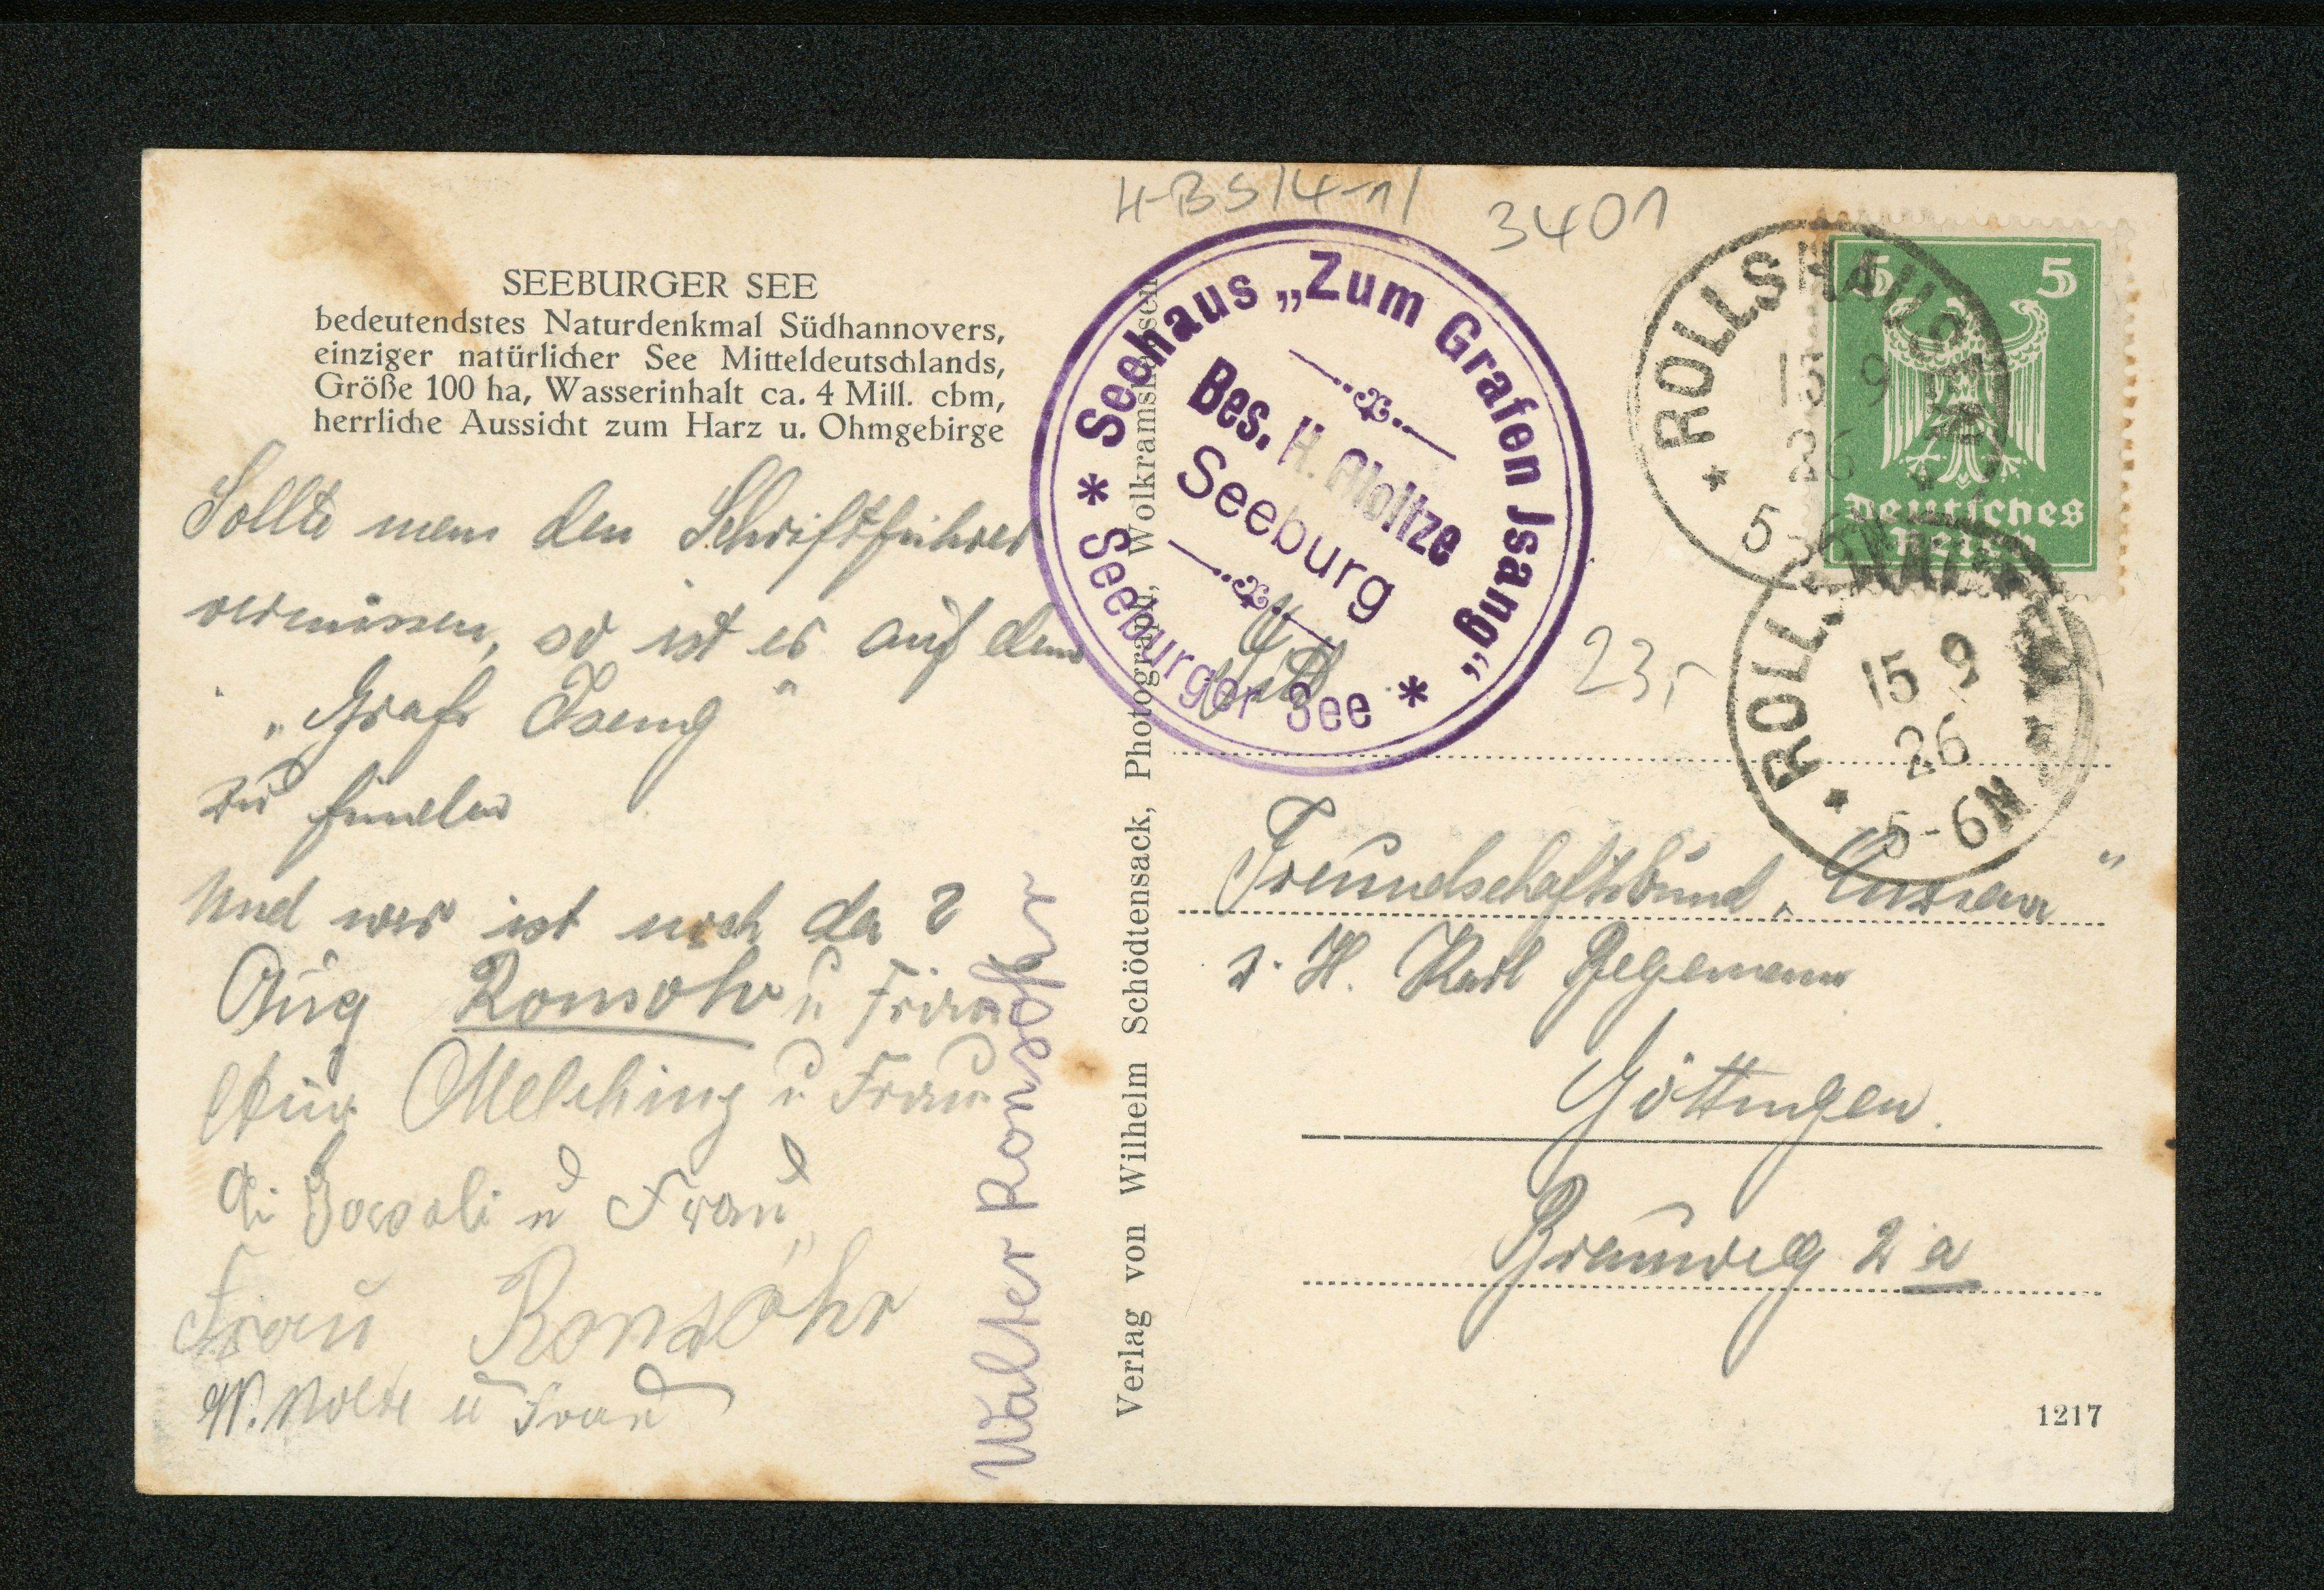 H-BS/4-1/
3401
SEEBURGER SEE
bedeutendstes Naturdenkmal Südhannovers,
einziger natürlicher See Mitteldeutschlands,
Größe 100 ha, Wasserinhalt ca. 4 Mill. cbm,
herrliche Aussicht zum Harz u. Ohmgebirge
Sollte man den Schriftführer
vermissen, so ist er auf dem
„Grafr Isang"
zu finden
Und wer ist noch da?
Aug Ronsöhr u Frau
Melching u Frau
u Frau
Frau Ronsöhr
W. Nolte u Frau
Walter Ronsöhr
Verlag von Wilhelm Schödtensack, Photograph, Wolkramshausen
* Seehaus „Zum Grafen Jsang" *
Bes. H.
Seeburg
Seeburger See
5 5
Deutsches
Reich
* ROLLSHAUSEN
15 9
26
5-6N
* ROLLSHAUSEN
15 9
26
5-6N
23,-
Freundschaftsbund „
z. H. Karl Hegemann
Göttingen.
Brauweg 2a
1217